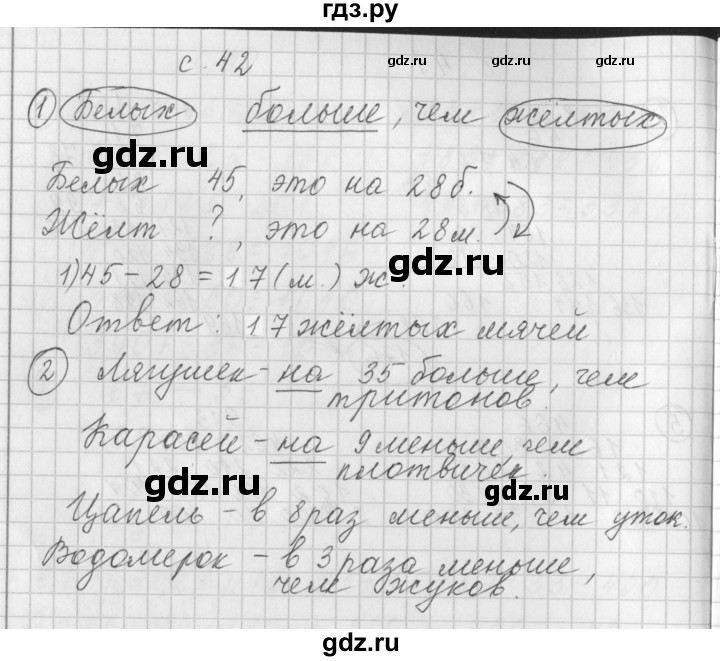 гдз.ру
с. 42
gdz.ru gdz.ru
① Белых больше, чем жёлтых
gdz.ru
Белых 45, это на 28 б.
Жёлт ?, это на 28 м.
gdz.ru
1) 45 - 28 = 17 (м.) ж.
Ответ: 17 жёлтых мячей
② Лягушек - на 35 больше, чем
gdz.ru
тритонов.
Карасей - на 9 меньше, чем
плотвичек.
gdz.ru gdz.ru
Цапель - в 8 раз меньше, чем уток.
Водомерок - в 3 раза меньше,
чем жуков.
gdz.ru gdz.ru
гдз.ру